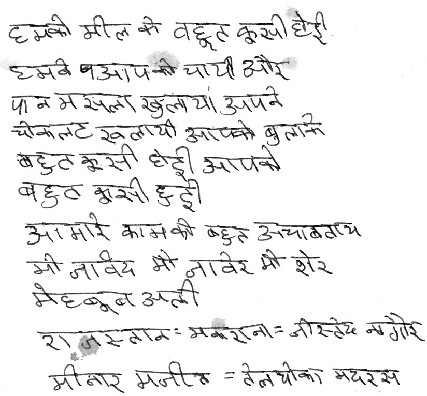 हमको मील के वहूत कुसी होई
हमने आपको चायी और
पान मसाला खुलाया अपने
चोकलट खलायी आपको बुलाके
बहुत कुसी होई आपको
बहुत कुसी हुई
आमारे काम को बहुत अचाबताय
मो जावेद मो जावेर मो शेर
मेहबून अली
राजस्तान = मकराना = जीस्तेय नागौर
मीनार मजीद = तेलयोका मदरस